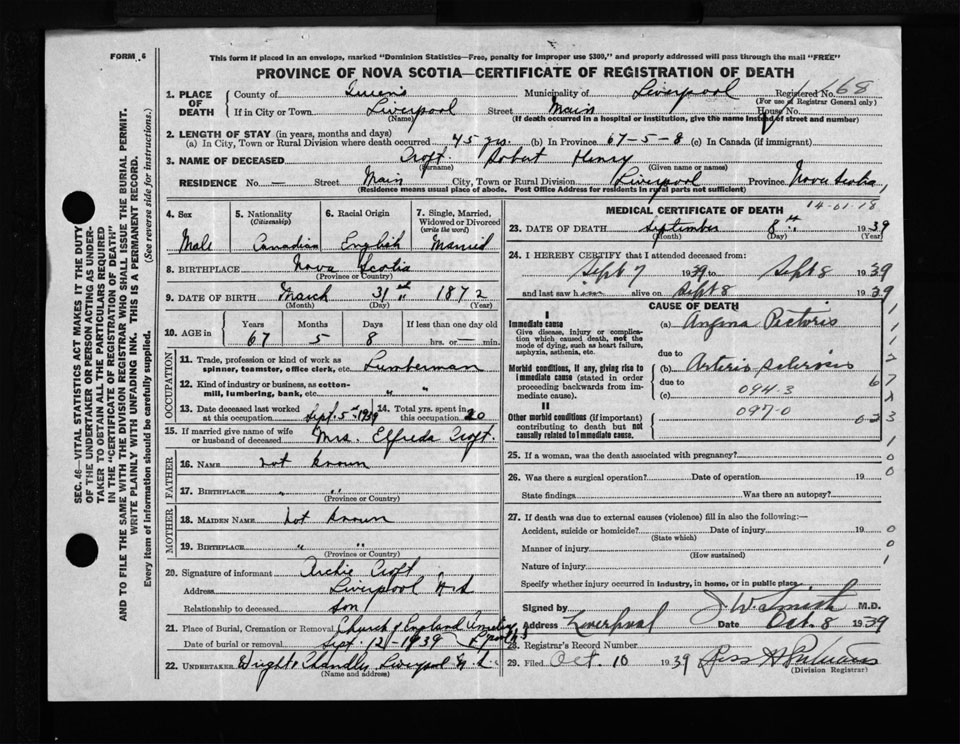 FORM 6
This form if placed in an envelope, marked "Dominion Statistics—Free, penalty for improper use $300," and properly addressed will pass through the mail "FREE"
PROVINCE OF NOVA SCOTIA—CERTIFICATE OF REGISTRATION OF DEATH
SEC. 46—VITAL STATISTICS ACT MAKES IT THE DUTY
OF THE UNDERTAKER OR PERSON ACTING AS UNDER-
TAKER TO OBTAIN ALL THE PARTICULARS REQUIRED
IN THE "CERTIFICATE OF REGISTRATION OF DEATH"
AND TO FILE THE SAME WITH THE DIVISION REGISTRAR WHO SHALL ISSUE THE BURIAL PERMIT.
WRITE PLAINLY WITH UNFADING INK. THIS IS A PERMANENT RECORD.
Every item of information should be carefully supplied. (See reverse side for instructions.)
1. PLACE OF DEATH County of Queens Municipality of Liverpool Registered No. 68
(For use of Registrar General only)
If in City or Town Liverpool Street Main House No.
(Name) (If death occurred in a hospital or institution, give the name instead of street and number)
2. LENGTH OF STAY (in years, months and days)
(a) In City, Town or Rural Division where death occurred 45 yrs. (b) In Province 67-5-8 (c) In Canada (if immigrant)
3. NAME OF DECEASED Croft. Robert Henry
(Surname) (Given name or names)
RESIDENCE No. — Street Main City, Town or Rural Division Liverpool Province Nova Scotia,
(Residence means usual place of abode. Post Office Address for residents in rural parts not sufficient)
4. Sex 5. Nationality (Citizenship) 6. Racial Origin 7. Single, Married, Widowed or Divorced (write the word)
Male Canadian English Married
8. BIRTHPLACE Nova Scotia
(Province or Country)
9. DATE OF BIRTH March 31st 1872
(Month) (Day) (Year)
10. AGE in Years Months Days If less than one day old
67 5 8 hrs. or — min.
OCCUPATION
11. Trade, profession or kind of work as spinner, teamster, office clerk, etc. Lumberman
12. Kind of industry or business, as cotton-mill, lumbering, bank, etc. " "
13. Date deceased last worked at this occupation Sept. 5th 1939 14. Total yrs. spent in this occupation 20
15. If married give name of wife or husband of deceased Mrs. Elfreda Croft.
FATHER
16. NAME not known
17. BIRTHPLACE " "
(Province or Country)
MOTHER
18. MAIDEN NAME not known
19. BIRTHPLACE " "
(Province or Country)
20. Signature of informant Archie Croft
Address Liverpool N.S
Relationship to deceased Son
21. Place of Burial, Cremation or Removal Church of England Cemetery
Date of burial or removal Sept. 12-1939
22. UNDERTAKER Wright Chandler, Liverpool N.S.
(Name and Address)
14-01-18
MEDICAL CERTIFICATE OF DEATH
23. DATE OF DEATH September 8th 1939
(Month) (Day) (Year)
24. I HEREBY CERTIFY that I attended deceased from:
Sept 7 1939 to Sept 8 1939
and last saw him alive on Sept 8 1939
CAUSE OF DEATH
I
Immediate cause (a) Angina Pectoris
Give disease, injury or complication which caused death, not the mode of dying, such as heart failure, asphyxia, asthenia, etc.
due to
Morbid conditions, if any, giving rise to immediate cause (stated in order proceeding backwards from immediate cause). (b) Arterio sclerosis
due to 094.3
(c)
097-0
II
Other morbid conditions (if important) contributing to death but not causally related to immediate cause.
25. If a woman, was the death associated with pregnancy?
26. Was there a surgical operation? Date of operation 19
State findings Was there an autopsy?
27. If death was due to external causes (violence) fill in also the following:—
Accident, suicide or homicide? Date of injury 19
(State which)
Manner of injury
(How sustained)
Nature of injury
Specify whether injury occurred in industry, in home, or in public place.
Signed by J. W. Smith M.D.
Address Liverpool Date Oct. 8 1939
28. Registrar's Record Number
29. Filed Oct. 10 1939
(Division Registrar)